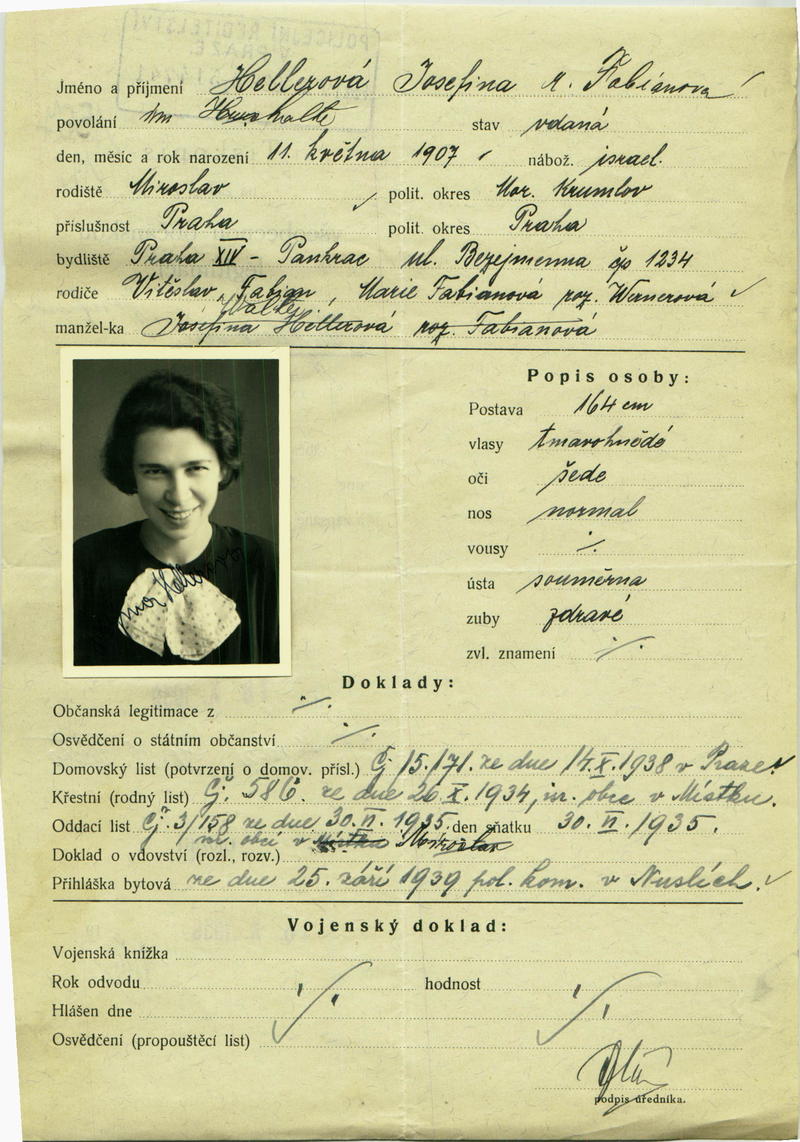 POLICEJNÍ ŘEDITELSTVÍ
V PRAZE
Jméno a příjmení Hellerová Josefina r. Fabianova
povolání
stav vdaná
den, měsíc a rok narození 11. května 1907 nábož. israel.
rodiště Miroslav polit. okres Mor. Krumlov
příslušnost Praha polit. okres Praha
bydliště Praha XIV - Pankrac ul. Bezejmenna čp 1234
rodiče Vítěslav Fabian, Marie Fabianová roz. Wernerová
manžel-ka Josefina Hellerová roz. Fabianová
Popis osoby:
Postava 164 cm
vlasy tmavohnědé
oči šede
nos normal
vousy ·/.
ústa souměrna
zuby zdravé
zvl. znamení ·/.
Doklady:
Občanská legitimace z ·/.
Osvědčení o státním občanství ·/.
Domovský list (potvrzení o domov. přísl.) Čj 15.171. ze dne 14.X.1938 v Praze.
Křestní (rodný list) Čj. 586. ze dne 26 X. 1934, nr. obce v Místku.
Oddací list Čj. 3/158 ze dne 30. VI. 1935, den sňatku 30. VI. 1935.
nr. obce v
Doklad o vdovství (rozl., rozv.)
Přihláška bytová ze dne 25. září 1939 pol. kom. v Nuslích.
Vojenský doklad:
Vojenská knížka
Rok odvodu ·/. hodnost ·/.
Hlášen dne
Osvědčení (propouštěcí list)
podpis úředníka.